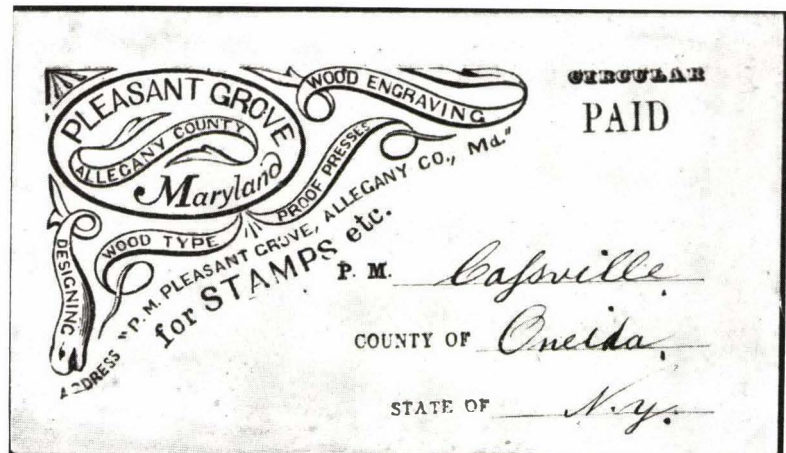 PLEASANT GROVE
ALLEGANY COUNTY
Maryland
WOOD ENGRAVING
PROOF PRESSES
WOOD TYPE
DESIGNING
ADDRESS "P.M. PLEASANT GROVE, ALLEGANY CO., Md."
for STAMPS etc.
CIRCULAR
PAID
P. M. Caſsville
COUNTY OF Oneida,
STATE OF N.y.